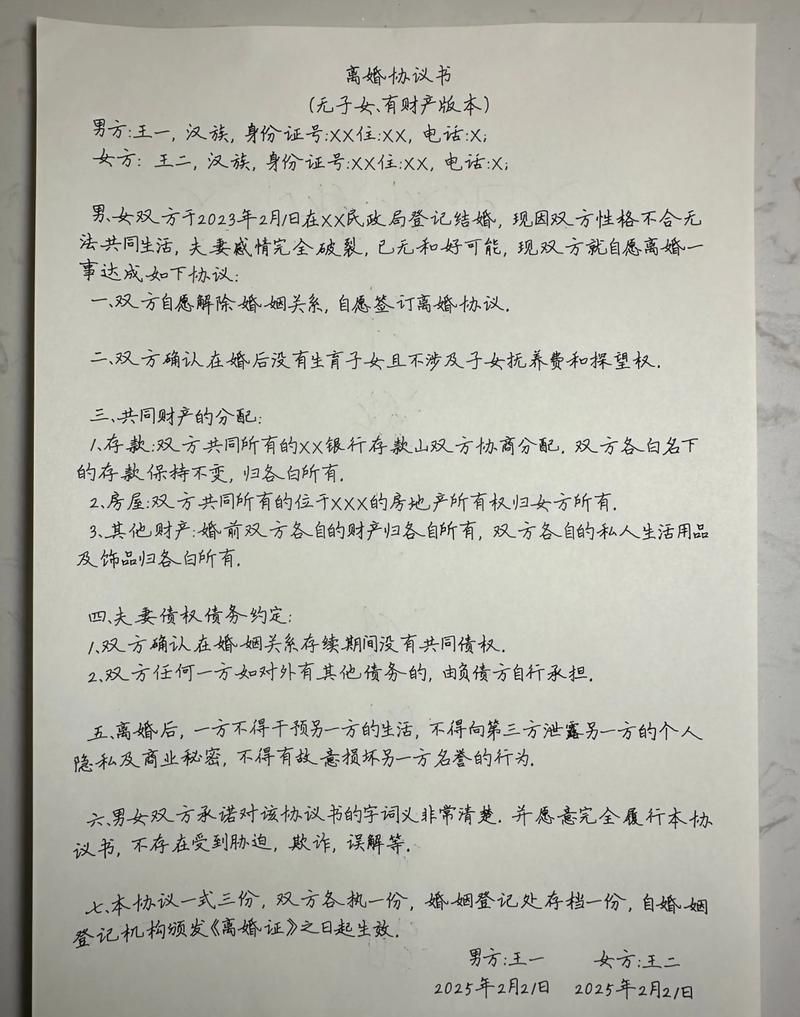 离婚协议书
(无子女、有财产版本)
男方:王一, 汉族, 身份证号:XX住:XX, 电话:X;
女方: 王二, 汉族, 身份证号:XX住:XX, 电话:X;
男、女双方于2023年2月1日在XX民政局登记结婚, 现因双方性格不合无
法共同生活, 夫妻感情完全破裂, 已无和好可能, 现双方就自愿离婚一
事达成如下协议:
一、双方自愿解除婚姻关系, 自愿签订离婚协议.
二、双方确认在婚后没有生育子女且不涉及子女抚养费和探望权.
三、共同财产的分配:
1.存款:双方共同所有的XX银行存款山双方协商分配. 双方各白名下
的存款保持不变, 归各白所有.
2.房屋:双方共同所有的位于XXX的房地产所有权归女方所有.
3.其他财产:婚前双方各自的财产归各自所有, 双方各自的私人生活用品
及饰品归各白所有.
四、夫妻债权债务约定:
1.双方确认在婚姻关系存续期间没有共同债权.
2.双方任何一方如对外有其他债务的, 由负债方自行承担.
五、离婚后, 一方不得干预另一方的生活, 不得向第三方泄露另一方的个人
隐私及商业秘密, 不得有故意损坏另一方名誉的行为.
六、男女双方承诺对该协议书的字词义非常清楚. 并愿意完全履行本协
议书, 不存在受到胁迫, 欺诈, 误解等.
七、本协议一式三份, 双方各执一份, 婚姻登记处存档一份, 自婚姻
登记机构颁发《离婚证》之日起生效.
男方:王一 女方:王二
2025年2月21日 2025年2月21日